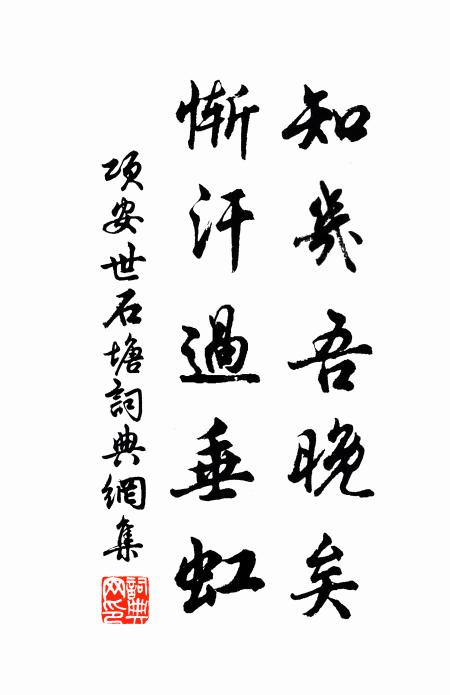 知幾吾晚矣
慚汗過垂虹
項安世石塘詞典網集
詞典網印